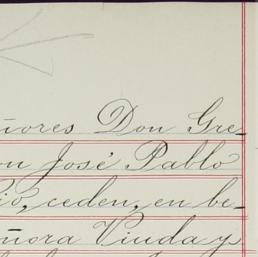 ñores Don Gre-
on José Pablo
io, ceden, en be-
eñora Viuda y